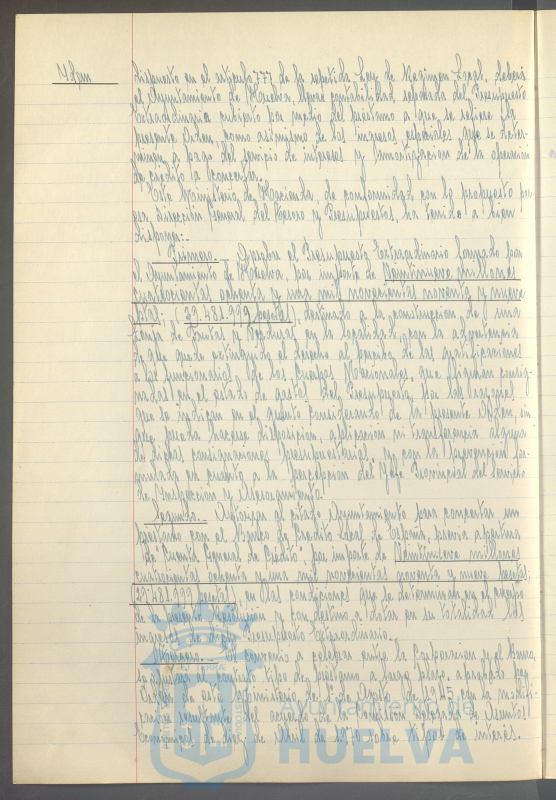 Idem
dispuesto en el artículo 777 de la repetida Ley de Regimen Local, deberá
el Ayuntamiento de Huelva, llevar contabilidad separada del Presupuesto
extraordinario cubierto por medio del prestamo a que se refiere la
presente Orden, como asimismo de los ingresos especiales que se deter-
minen a pago del servicio de intereses y amortización de la operacion
de credito a concertar.
Este Ministerio de Hacienda, de conformidad con lo propuesto por
esa Dirección General del Tesoro y Presupuestos, ha tenido a bien
disponer:
Primero.- Aprobar el Presupuesto Extraordinario formado por
el Ayuntamiento de Huelva, por importe de Veintinueve millones
cuatrocientas ochenta y una mil novecientas noventa y nueve
pesetas, (29.481.999 pesetas), destinado a la construccion de una
Lonja de Frutas y Verduras, en la localidad, con la advertencia
de que quede extinguido el derecho al percibo de las gratificaciones
a los funcionarios de los Cuerpos Nacionales, que figuran consig-
nadas en el estado de gastos del Presupuesto, por las razones
que se indican en el quinto considerando de la presente Orden, sin
que pueda hacerse disposicion, aplicacion ni transferencia alguna
de dichas consignaciones presupuestarias, y con la prevencion
en cuanto a la percepcion del Jefe Provincial del Servicio
de Inspeccion y Asesoramiento.
Segundo.- Autorizar al citado Ayuntamiento para concertar un
prestamo con el Banco de Credito Local de España, previa apertura
de "Cuenta General de Crédito", por importe de Veintinueve millones
cuatrocientas ochenta y una mil novecientas noventa y nueve pesetas,
(29.481.999 pesetas), en las condiciones que se determinan en el cuerpo
de la presente Resolucion y con destino a dotar en su totalidad los
ingresos de dicho Presupuesto extraordinario.
Tercero.- El convenio a celebrar entre la Corporacion y el Banco,
se ajustará al contrato tipo de prestamo a largo plazo, aprobado por
Orden de este Ministerio de de Agosto de 1945 con la modifi-
cacion resultante del acuerdo de la Comision Delegada de Asuntos
Económicos de diez de de 1970 sobre tipos de interés.
Ayuntamiento de
HUELVA